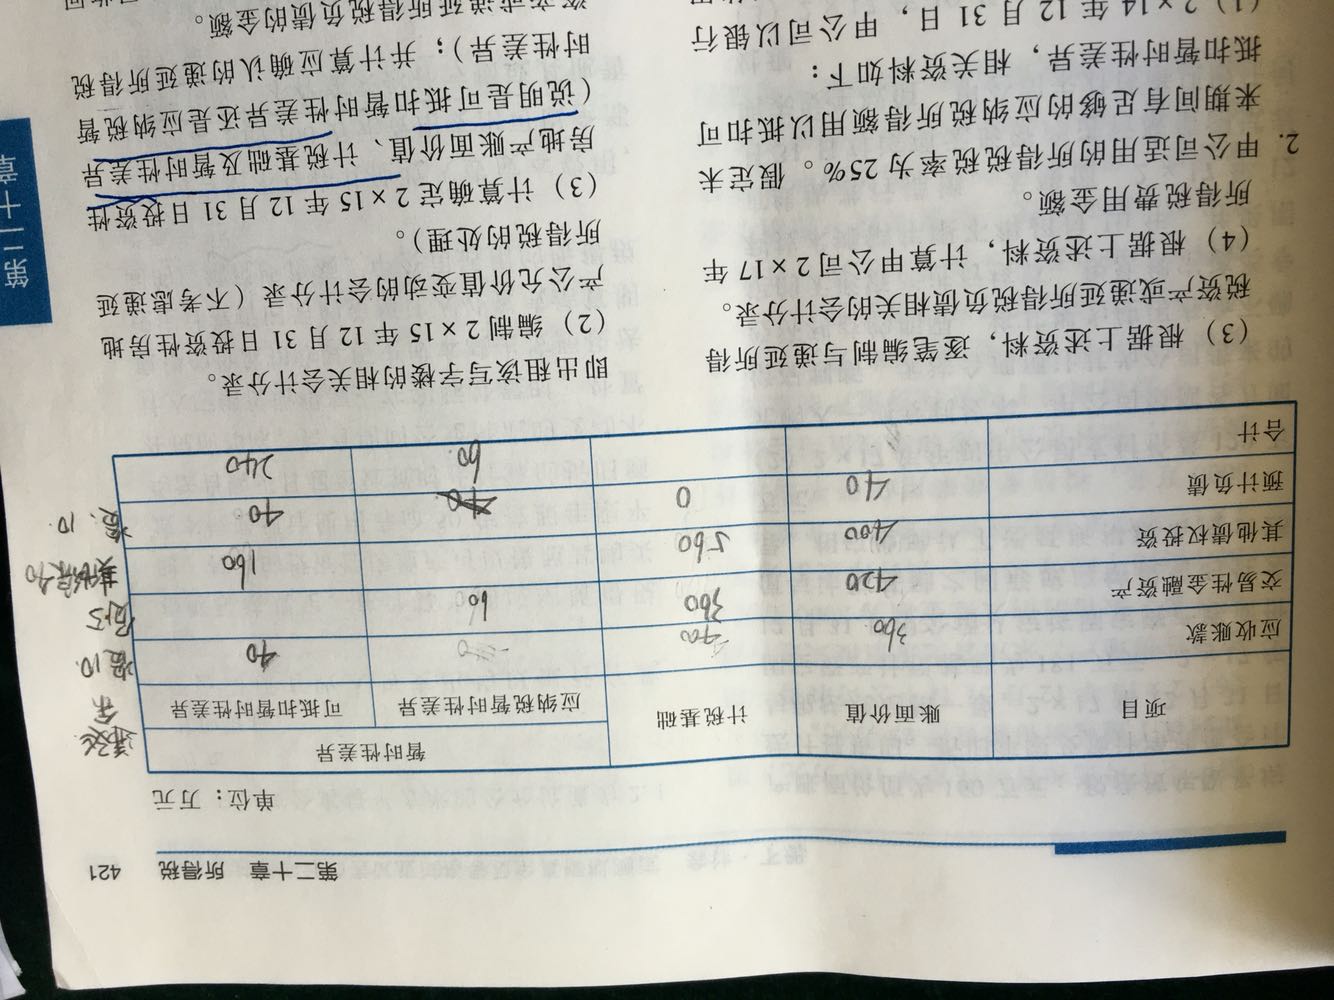 第二十章 所得税 421
单位：万元
项目 账面价值 计税基础 暂时性差异
应纳税暂时性差异 可抵扣暂时性差异
应收账款 360 400 40
交易性金融资产 420 360 60
其他债权投资 400 560 160
预计负债 40 0 40
合计 60 240
（3）根据上述资料，逐笔编制与递延所得
税资产或递延所得税负债相关的会计分录。
（4）根据上述资料，计算甲公司2×17年
所得税费用金额。
2. 甲公司适用的所得税税率为25%。假定未
来期间有足够的应纳税所得额用以抵扣可
抵扣暂时性差异，相关资料如下：
（1）2×14年12月31日，甲公司以银行
即出租该写字楼的相关会计分录。
（2）编制2×15年12月31日投资性房地
产公允价值变动的会计分录（不考虑递延
所得税的处理）。
（3）计算确定2×15年12月31日投资性
房地产账面价值、计税基础及暂时性差异
（说明是可抵扣暂时性差异还是应纳税暂
时性差异）；并计算应确认的递延所得税
资产或递延所得税负债的金额。
第二十章